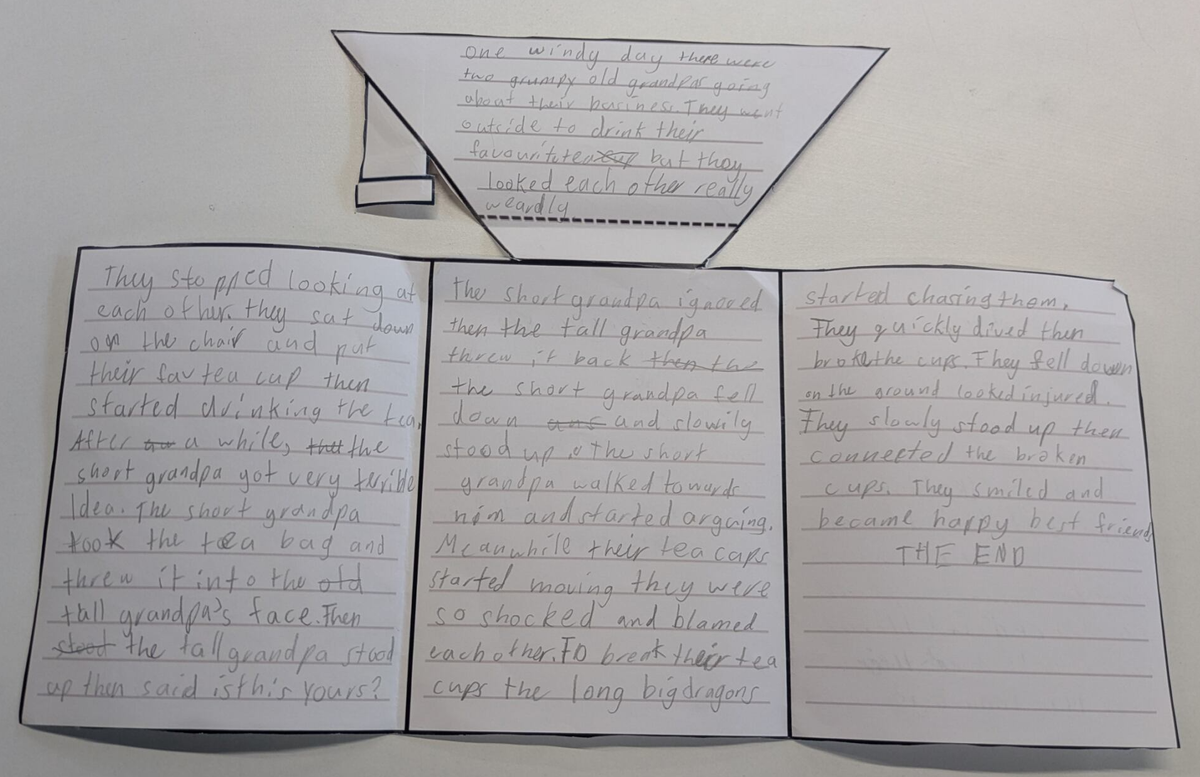 One windy day there were
two grumpy old grandpas going
about their business. They went
outside to drink their
favourite tea cup but they
looked each other really
weardly
They stopped looking at
each other. they sat down
on the chair and put
their fav tea cup then
started drinking the tea.
After a while, the
short grandpa got very terrible
Idea. The short grandpa
took the tea bag and
threw it into the old
tall grandpa's face. Then
stood the tall grandpa stood
up then said is this yours?
The short grandpa ignored
then the tall grandpa
threw it back then the
the short grandpa fell
down ans and slowily
stood up. The short
grandpa walked towards
him and started arguing.
Meanwhile their tea cups
started moving they were
so shocked and blamed
each other. To break their tea
cups the long big dragons
started chasing them.
They quickly dived then
broke the cups. They fell down
on the ground looked injured.
They slowly stood up then
connected the broken
cups. They smiled and
became happy best friends
THE END